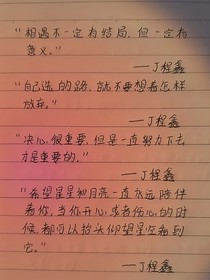 “相遇不一定有结局，但一定有
意义。”
——丁程鑫
“自己选的路，就不要想着怎样
放弃。”
——丁程鑫
“决心很重要，但是一直努力下去
才是重要的。”
——丁程鑫
“希望星星和月亮一直永远陪伴
着你，当你开心或者伤心的时
候，都可以抬头仰望星空看到
它。”
——丁程鑫